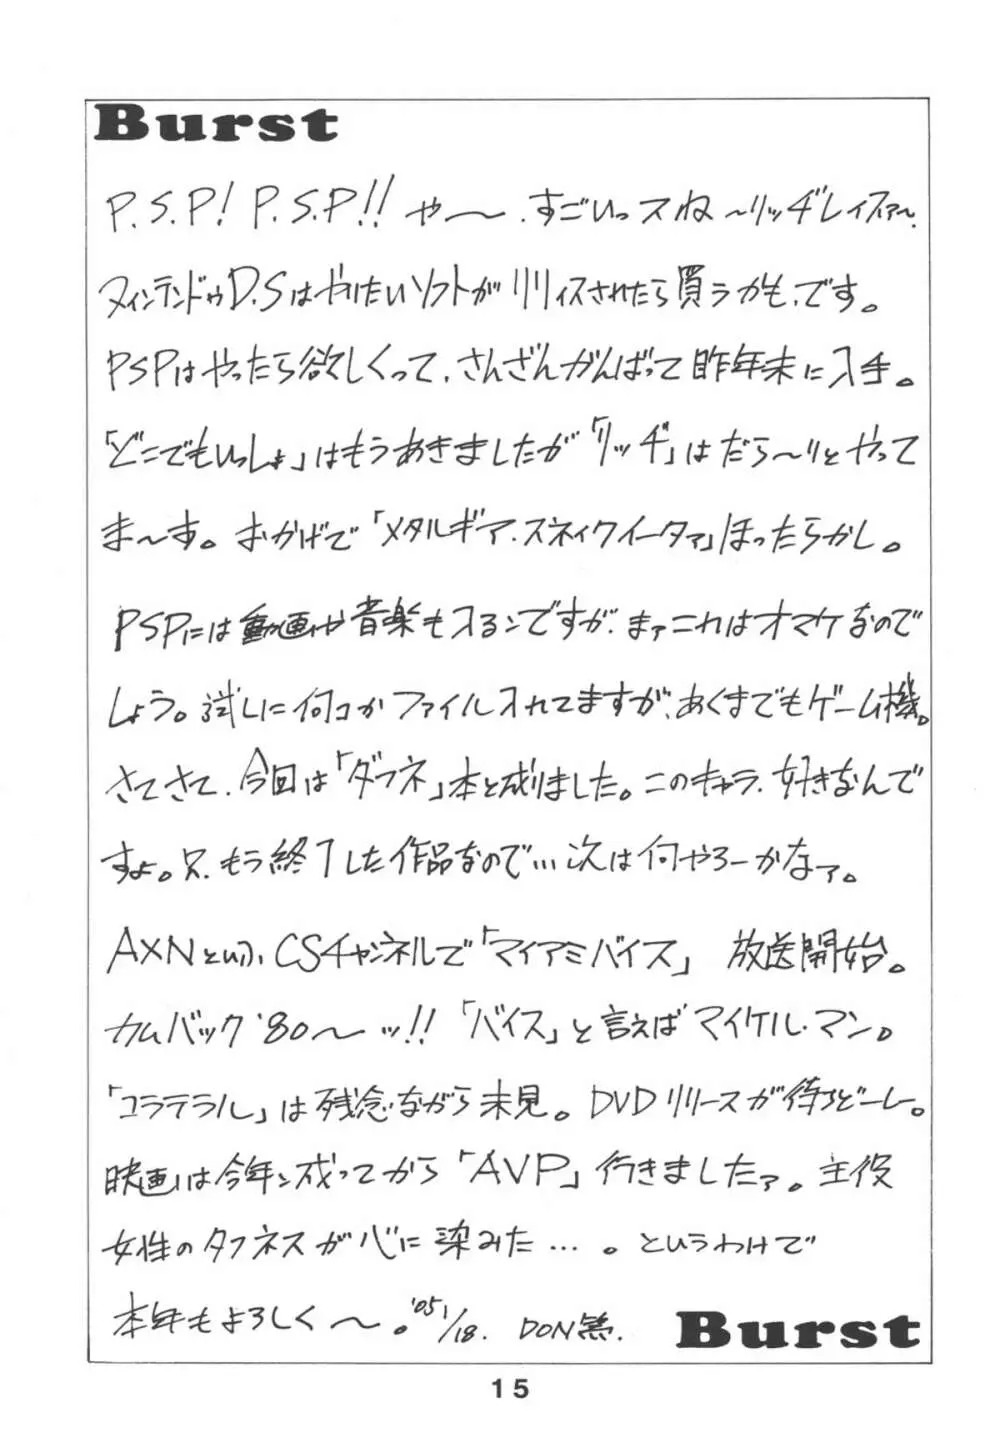 Burst
P.S.P! P.S.P!! や〜、すごいっスね〜リッヂレイスァ〜、
ヌィンテンドゥD.Sはやりたいソフトがリリィスされたら買うかも、です。
PSPはやったら欲しくって、さんざんがんばって昨年末に入手。
「どこでもいっしょ」はもうあきましたが「リッヂ」はだら〜りとやって
ま〜す。おかげで「メタルギア・スネイクイータァ」ほったらかし。
PSPには動画や音楽も入るンですが、まァこれはオマケなので
しょう。試しに何コかファイル入れてますが、あくまでもゲーム機。
さてさて、今回は「ダフネ」本と成りました。このキャラ、好きなんで
すよ。只、もう終了した作品なので…次は何やろーかなァ。
AXNという、CSチャンネルで「マイアミバイス」 放送開始。
カムバック'80〜ッ!!「バイス」と言えばマイケル・マン。
「コラテラル」は残念ながら未見。DVDリリースが待ちどーし。
映画は今年ン成ってから「AVP」行きましたァ。主役
女性のタフネスが心に染みた…。というわけで
本年もよろしく〜。'05 1/18. DON
Burst
15